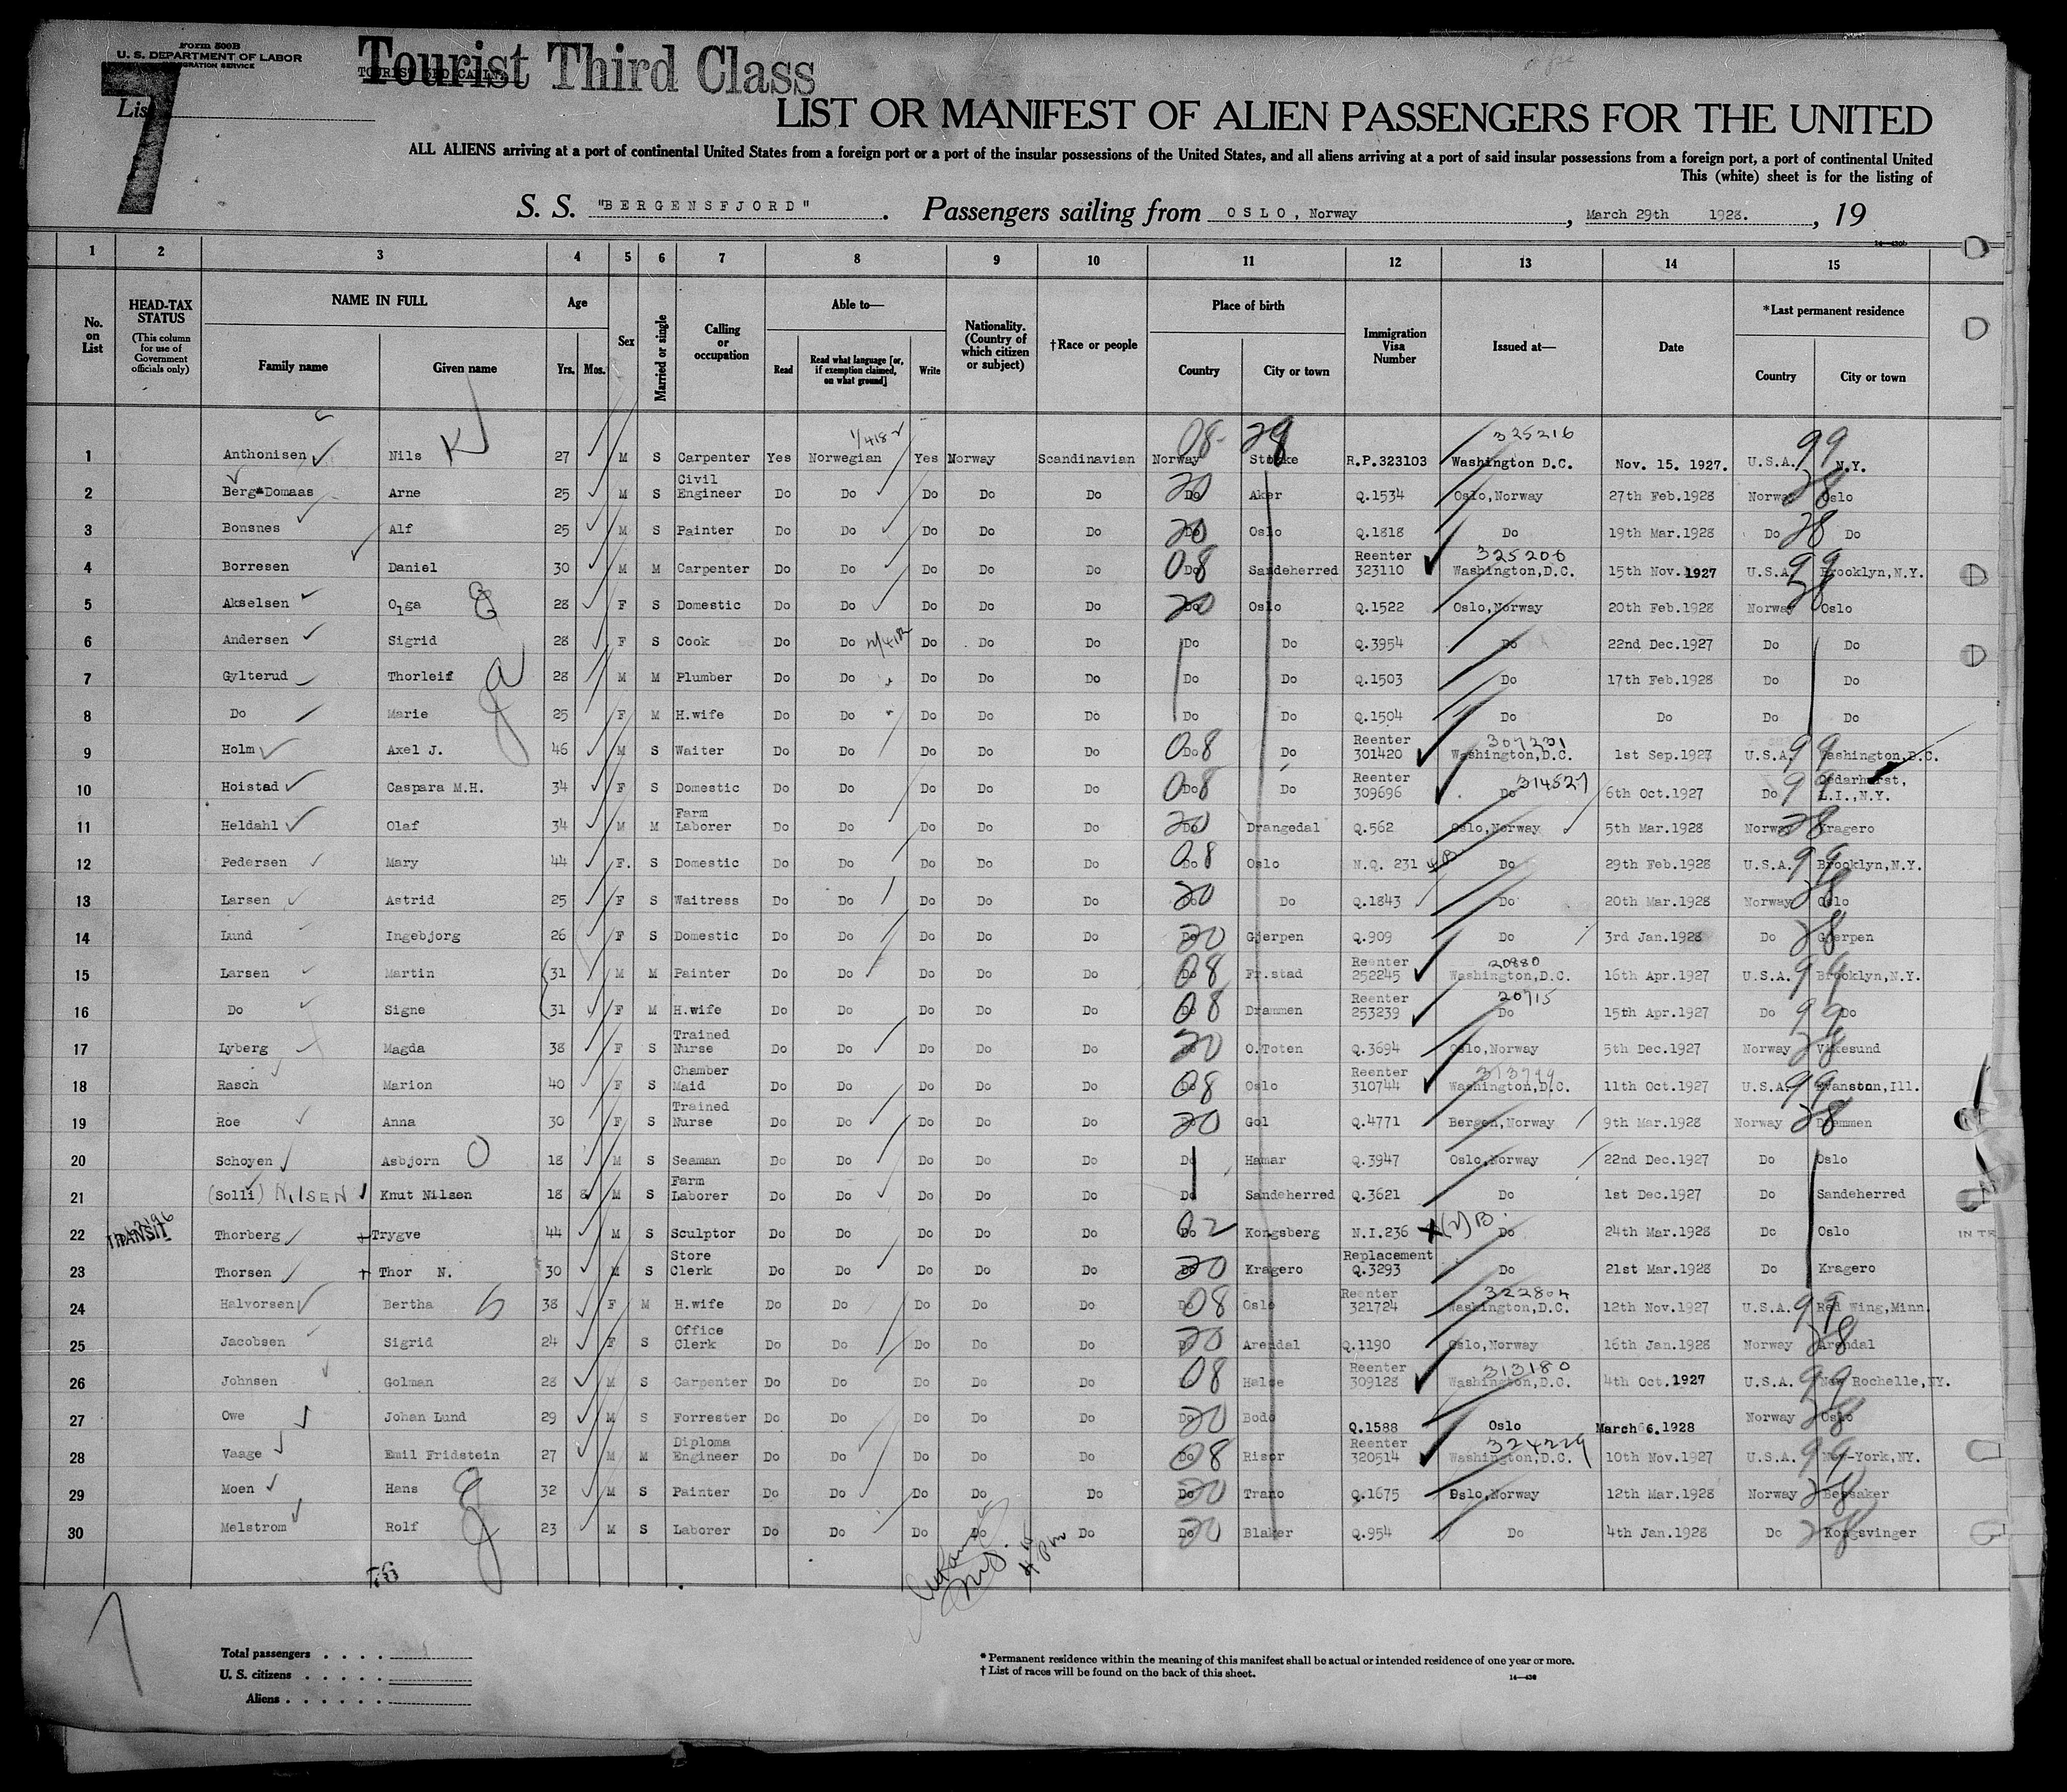 Form 500B
U. S. DEPARTMENT OF LABOR
IMMIGRATION SERVICE
Tourist Third Class
7
List
LIST OR MANIFEST OF ALIEN PASSENGERS FOR THE UNITED
ALL ALIENS arriving at a port of continental United States from a foreign port or a port of the insular possessions of the United States, and all aliens arriving at a port of said insular possessions from a foreign port, a port of continental United
This (white) sheet is for the listing of
S. S. "BERGENSFJORD". Passengers sailing from OSLO, Norway, March 29th 1928., 19
1 2 3 4 5 6 7 8 9 10 11 12 13 14 15
No. on List HEAD-TAX STATUS (This column for use of Government officials only) NAME IN FULL Family name Given name Age Yrs. Mos. Sex Married or single Calling or occupation Able to— Read Read what language [or, if exemption claimed, on what ground] Write Nationality. (Country of which citizen or subject) †Race or people Place of birth Country City or town Immigration Visa Number Issued at— Date *Last permanent residence Country City or town
1 Anthonisen Nils 27 M S Carpenter Yes Norwegian Yes Norway Scandinavian Norway Stokke R.P.323103 325216 Washington D.C. Nov. 15. 1927. U.S.A. 99 N.Y.
2 Berg-Domaas Arne 25 M S Civil Engineer Do Do Do Do Do Do 20 Aker Q.1534 Oslo,Norway 27th Feb.1928 Norway 28 Oslo
3 Bonsnes Alf 25 M S Painter Do Do Do Do Do Do 20 Oslo Q.1818 Do 19th Mar.1928 Do 28 Do
4 Borresen Daniel 30 M M Carpenter Do Do Do Do Do Do 08 Sandeherred Reenter 323110 325206 Washington,D.C. 15th Nov.1927 U.S.A. 99 Brooklyn,N.Y.
5 Akselsen Olga 28 F S Domestic Do Do Do Do Do Do 20 Oslo Q.1522 Oslo,Norway 20th Feb.1928 Norway 28 Oslo
6 Andersen Sigrid 28 F S Cook Do Do Do Do Do Do Do Q.3954 Do 22nd Dec.1927 Do Do
7 Gylterud Thorleif 28 M M Plumber Do Do Do Do Do Do Do Q.1503 Do 17th Feb.1928 Do Do
8 Do Marie 25 F M H.wife Do Do Do Do Do Do Do Q.1504 Do Do Do Do
9 Holm Axel J. 46 M S Waiter Do Do Do Do Do Do 08 Do Reenter 301420 307231 Washington,D.C. 1st Sep.1927 U.S.A. 99 Washington,D.C.
10 Hoistad Caspara M.H. 34 F S Domestic Do Do Do Do Do Do 08 Do Reenter 309696 Do 314527 6th Oct.1927 Do 99 Cedarhurst, L.I.,N.Y.
11 Heldahl Olaf 34 M M Farm Laborer Do Do Do Do Do Do 20 Drangedal Q.562 Oslo,Norway 5th Mar.1928 Norway 28 Kragero
12 Pedersen Mary 44 F. S Domestic Do Do Do Do Do Do 08 Oslo N.Q. 231 Do 29th Feb.1928 U.S.A. 99 Brooklyn,N.Y.
13 Larsen Astrid 25 F S Waitress Do Do Do Do Do 20 Do Q.1843 Do 20th Mar.1928 Norway 28 Oslo
14 Lund Ingebjorg 26 F S Domestic Do Do Do Do Do Do 20 Gjerpen Q.909 Do 3rd Jan.1928 Do 28 Gjerpen
15 Larsen Martin 31 M M Painter Do Do Do Do Do Do 08 Fr.stad Reenter 252245 20880 Washington,D.C. 16th Apr.1927 U.S.A. 99 Brooklyn,N.Y.
16 Do Signe 31 F M H.wife Do Do Do Do Do Do 08 Drammen Reenter 253239 20715 Do 15th Apr.1927 Do 99 Do
17 Lyberg Magda 38 F S Trained Nurse Do Do Do Do Do 20 O.Toten Q.3694 Oslo,Norway 5th Dec.1927 Norway 28 Vikesund
18 Rasch Marion 40 F S Chamber Maid Do Do Do Do Do Do 08 Oslo Reenter 310744 313799 Washington,D.C. 11th Oct.1927 U.S.A. 99 Evanston,Ill.
19 Roe Anna 30 F S Trained Nurse Do Do Do Do Do Do 20 Gol Q.4771 Bergen,Norway 9th Mar.1928 Norway 28 Drammen
20 Schoyen Asbjorn 18 M S Seaman Do Do Do Do Do Do Hamar Q.3947 Oslo,Norway 22nd Dec.1927 Do Oslo
21 (Solli) NILSEN Knut Nilsen 18 8 M S Farm Laborer Do Do Do Do Do Do Sandeherred Q.3621 Do 1st Dec.1927 Do Sandeherred
TRANSIT 22 Thorberg Trygve 44 M S Sculptor Do Do Do Do Do Do 02 Kongsberg N.I.236 (2) B Do 24th Mar.1928 Do Oslo
23 Thorsen Thor N. 30 M S Store Clerk Do Do Do Do Do Do 20 Kragero Replacement Q.3293 Do 21st Mar.1928 Do Kragero
24 Halvorsen Bertha 38 F M H.wife Do Do Do Do Do Do 08 Oslo Reenter 321724 322804 Washington,D.C. 12th Nov.1927 U.S.A. 99 Red Wing,Minn.
25 Jacobsen Sigrid 24 F S Office Clerk Do Do Do Do Do 20 Arendal Q.1190 Oslo,Norway 16th Jan.1928 Norway 28 Arendal
26 Johnsen Golman 28 M S Carpenter Do Do Do Do Do Do 08 Halse Reenter 309128 313180 Washington,D.C. 4th Oct.1927 U.S.A. 99 New Rochelle,NY.
27 Owe Johan Lund 29 M S Forrester Do Do Do Do Do Do 20 Bodo Q.1588 Oslo March 6.1928 Norway 28 Oslo
28 Vaage Emil Fridstein 27 M M Diploma Engineer Do Do Do Do Do Do 08 Risor Reenter 320514 324229 Washington,D.C. 10th Nov.1927 U.S.A. 99 New-York,NY.
29 Moen Hans 32 M S Painter Do Do Do Do Do Do 20 Trano Q.1675 Oslo,Norway 12th Mar.1928 Norway 28 Bessaker
30 Melstrom Rolf 23 M S Laborer Do Do Do Do Do Do 20 Blaker Q.954 Do 4th Jan.1928 Do 28 Kongsvinger
Total passengers
U. S. citizens
Aliens
* Permanent residence within the meaning of this manifest shall be actual or intended residence of one year or more.
† List of races will be found on the back of this sheet.